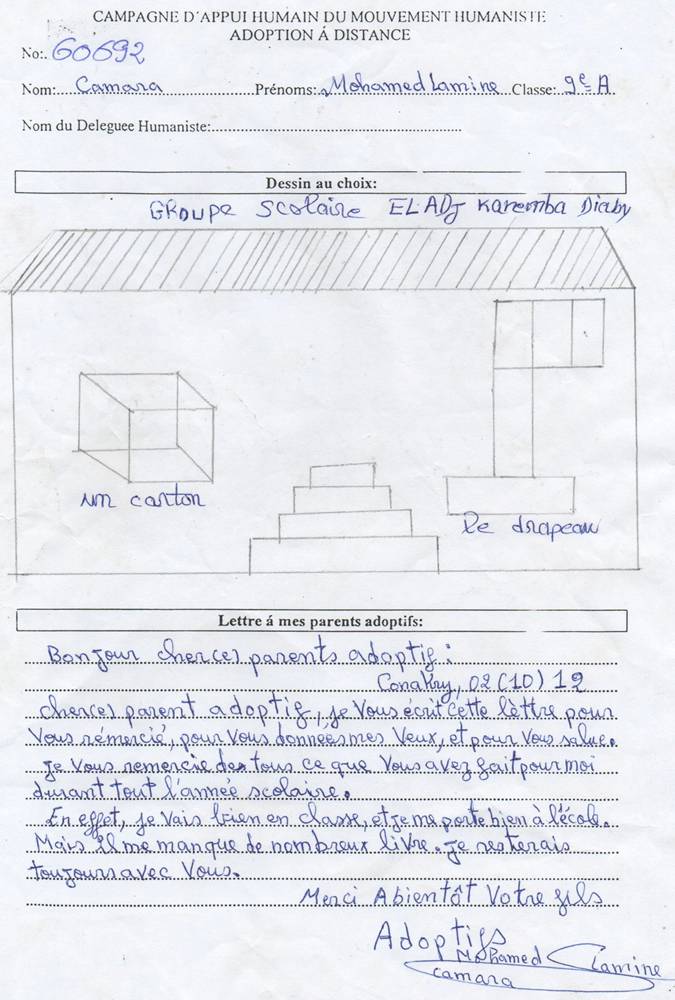 CAMPAGNE D'APPUI HUMAIN DU MOUVEMENT HUMANISTE
ADOPTION Á DISTANCE
No:. 60692
Nom:.... Camara .... Prénoms:. Mohamed Lamine Classe:. 9e A
Nom du Deleguee Humaniste:....
Dessin au choix:
GRoupe Scolaire EL ADJ Karemba Diaby
un carton
le drapeau
Lettre á mes parents adoptifs:
Bonjour cher(es) parents adoptif:
Conakry, 02(10)12
cher(es) parent adoptif, je Vous écrit cette lèttre pour
Vous rémercié, pour Vous donnees mes Veux, et pour Vous salue.
Je Vous remercie des tous ce que Vous avez fait pour moi
durant tout l'année scolaire.
En effet, je vais bien en classe, et je me porte bien à l'école.
Mais il me manque de nombreux livre. je resterais
toujours avec Vous.
Merci A bientôt Votre fils
Adoptifs
Mohamed Lamine
camara